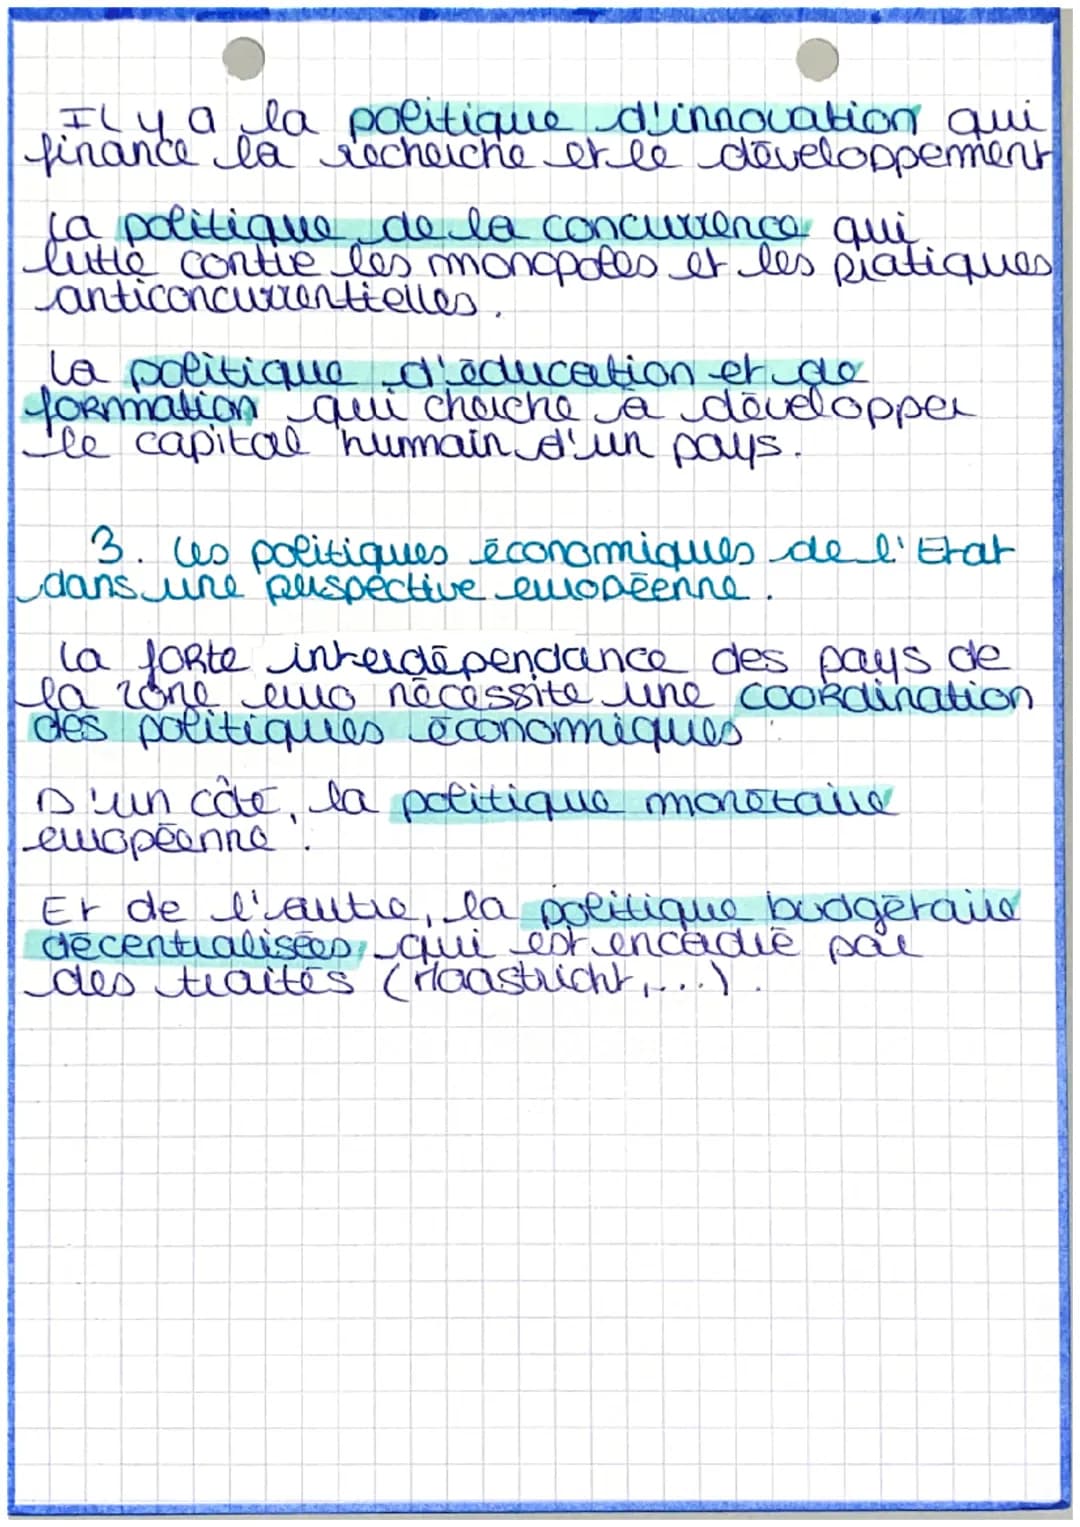 Il y a la politique d'innovation qui
finance la recherche et le développement
La politique de la concurrence qui
lutte contre les monopoles et les pratiques
anticoncurrentielles.
La politique d'éducation et de
formation qui cherche à développer
le capital humain d'un pays.
3. Les politiques économiques de l'Etat
dans une perspective européenne.
La forte interdépendance des pays de
la zone euro nécessite une coordination
des politiques économiques :
D'un côté, la politique monétaire
européenne.
Et de l'autre, la politique budgétaire
décentralisées, qui est encadré par
des traités (Maastricht,...).